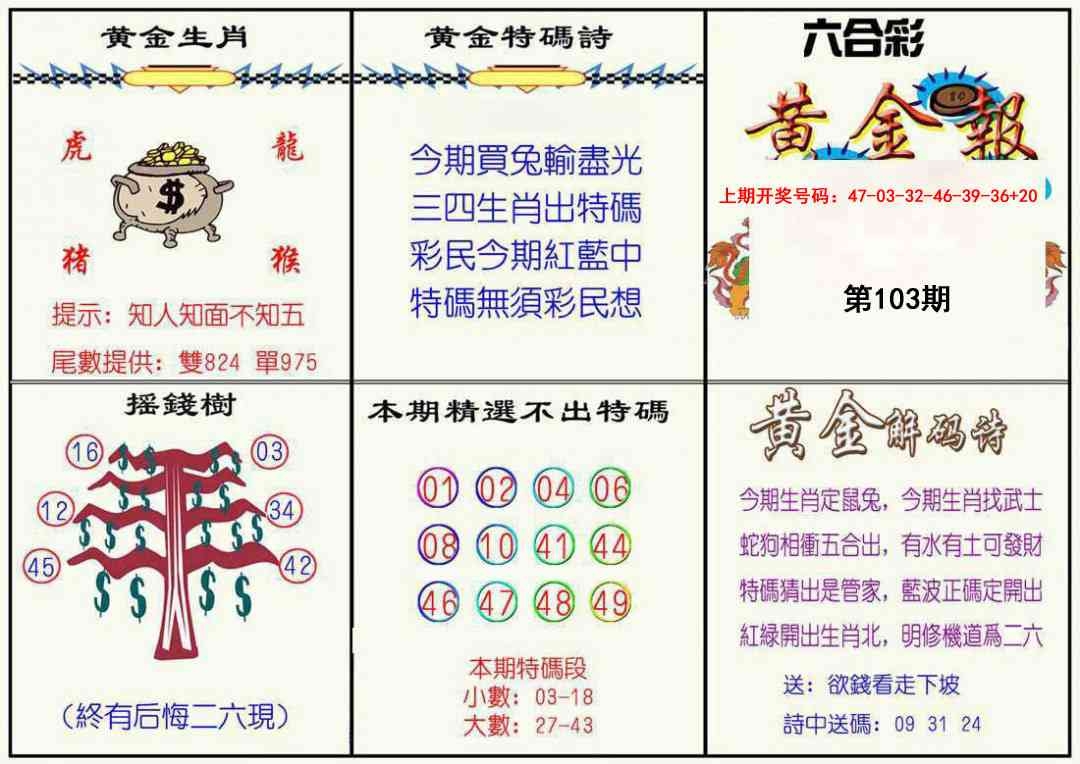 黄金生肖
虎 龍
猪 猴
提示：知人知面不知五
尾數提供：雙824 單975
黄金特碼詩
今期買兔輸盡光
三四生肖出特碼
彩民今期紅藍中
特碼無須彩民想
六合彩
黄金報
上期开奖号码：47-03-32-46-39-36+20
第103期
摇錢樹
16 03
12 34
45 42
（終有后悔二六現）
本期精選不出特碼
01 02 04 06
08 10 41 44
46 47 48 49
本期特碼段
小數：03-18
大數：27-43
黄金解码诗
今期生肖定鼠兔，今期生肖找武士
蛇狗相衝五合出，有水有土可發財
特碼猜出是管家，藍波正碼定開出
紅緑開出生肖北，明修機道爲二六
送：欲錢看走下坡
詩中送碼：09 31 24